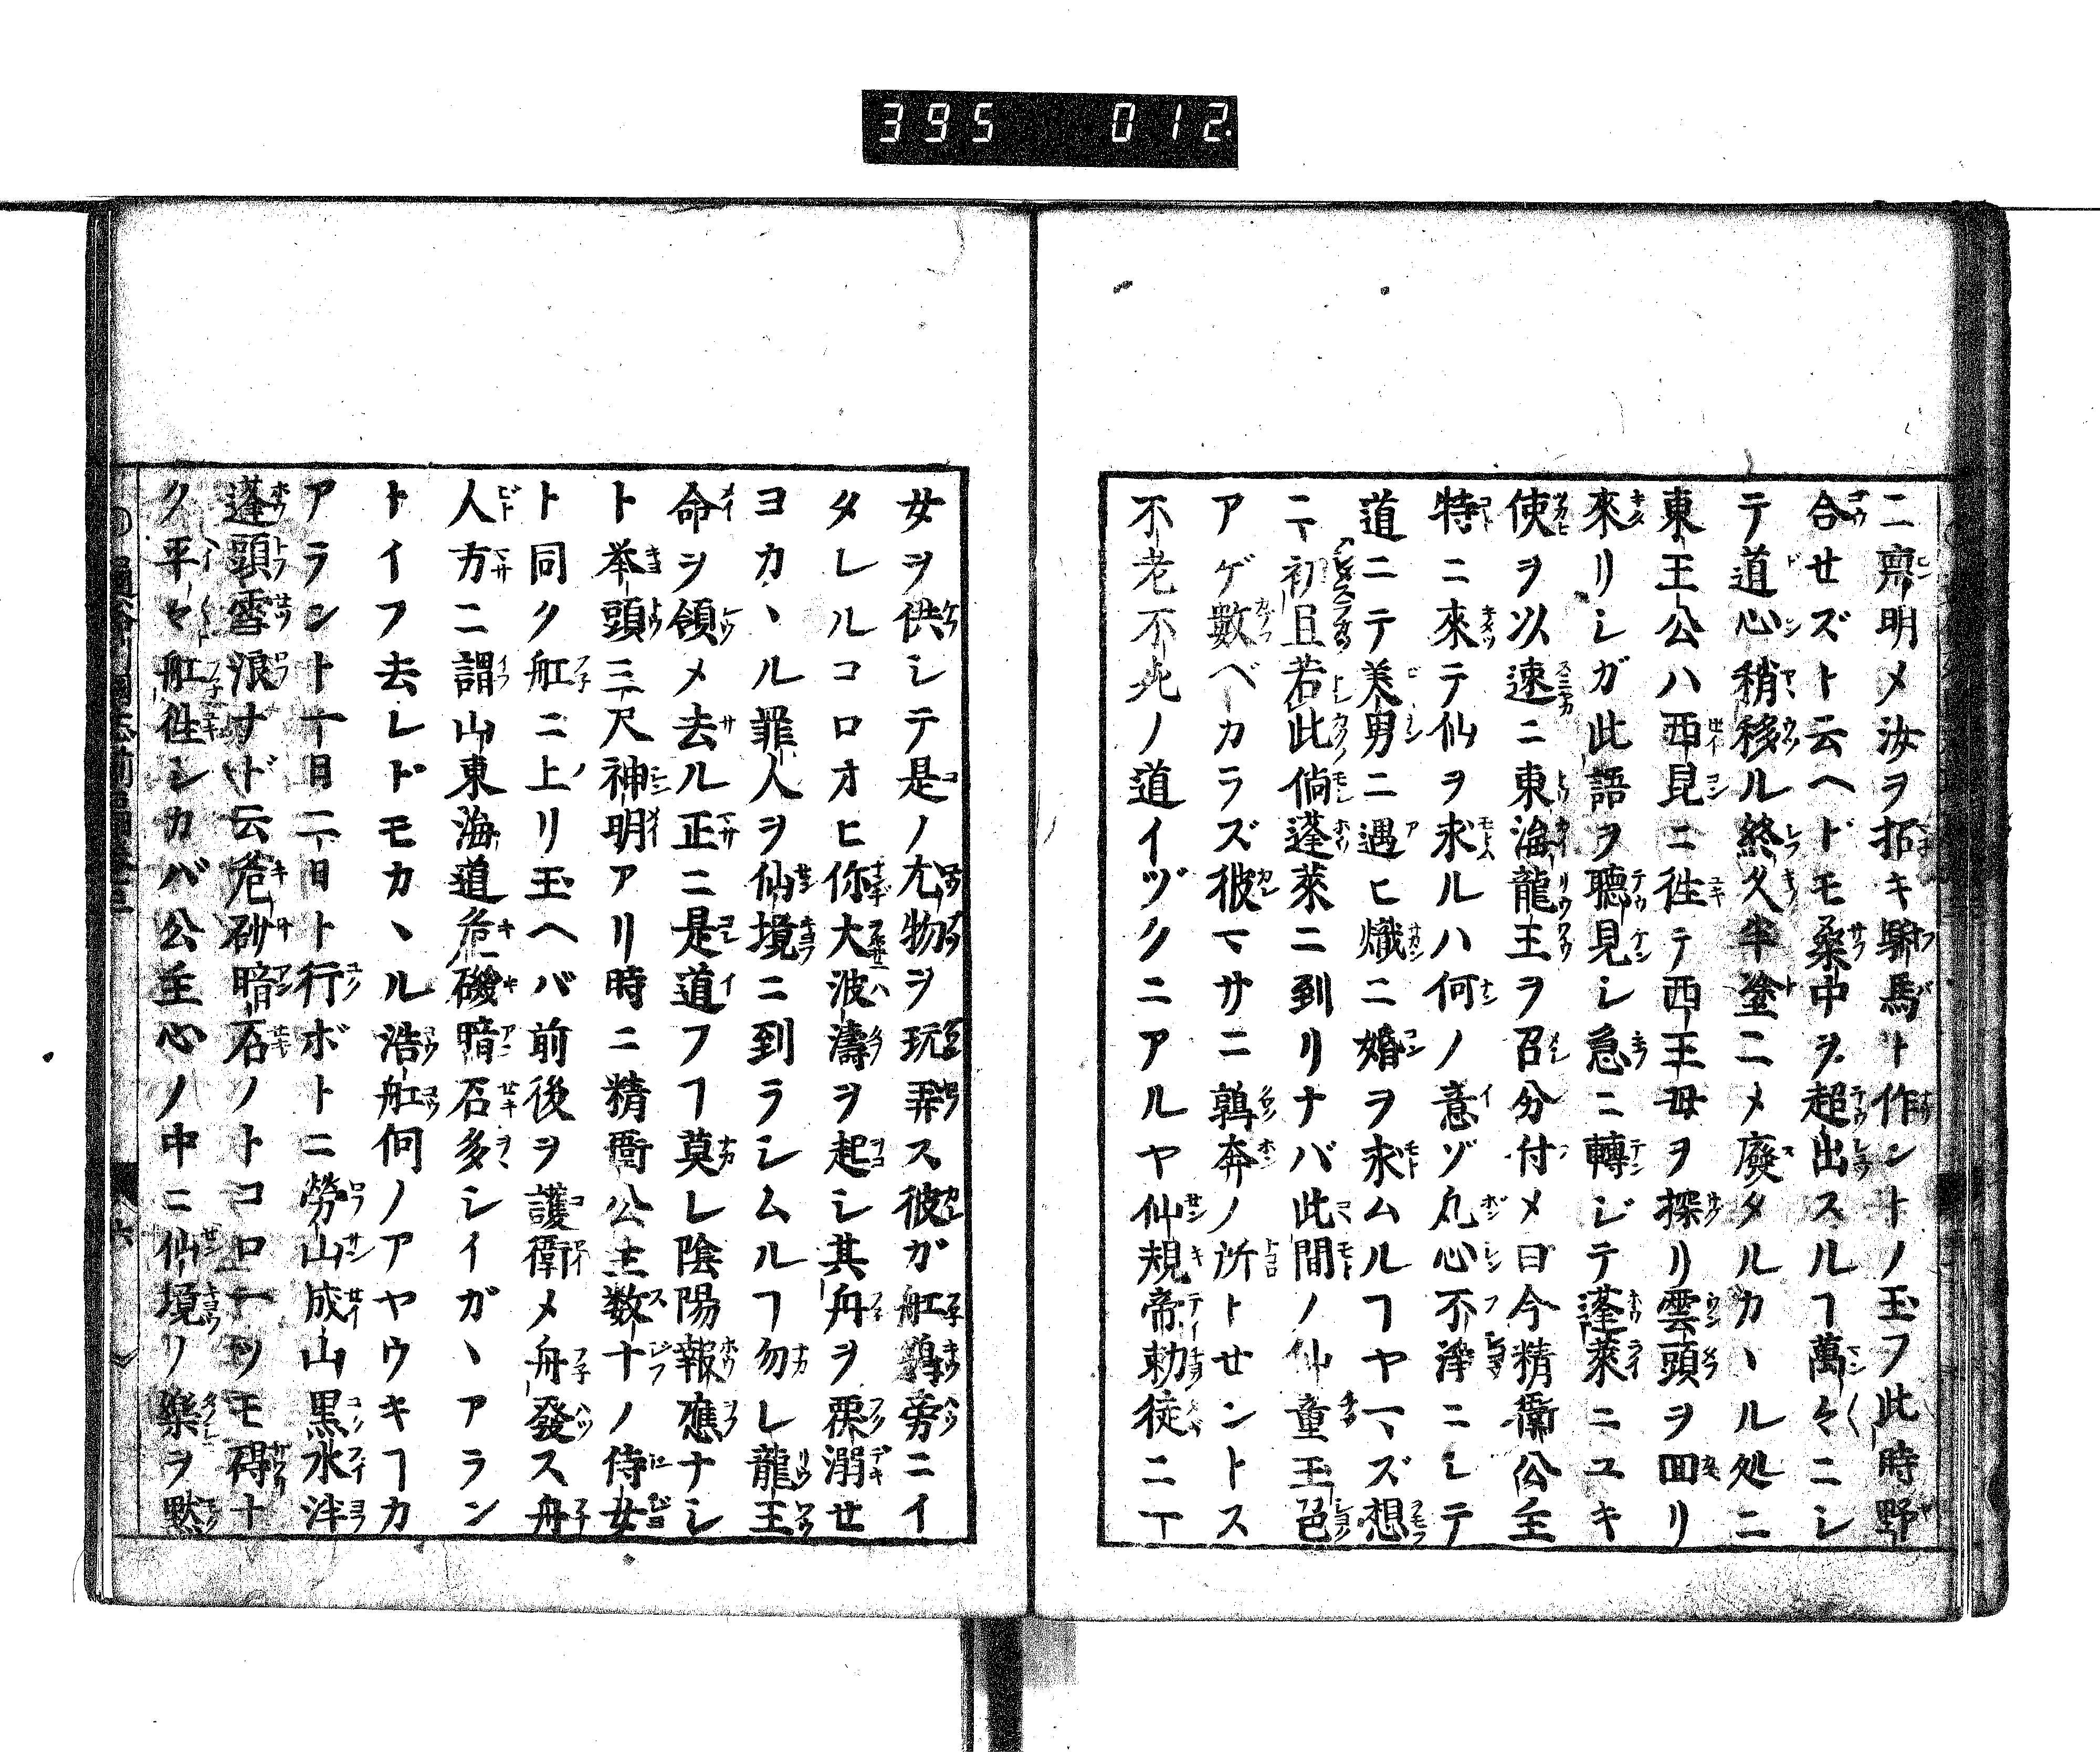 395 012.
ニ齊明メ汝ヲ拓キ駙馬ト作ントノ玉フ此時野
合セズト云ヘドモ桑中ヲ超出スルヿ萬々ニシ
テ道心稍移ル終久半塗ニメ廢タルカヽル処ニ
東王公ハ西見ニ徃テ西王母ヲ探リ雲頭ヲ囬リ
來リシガ此語ヲ聽見シ急ニ轉ジテ蓬萊ニユキ
使ヲ以速ニ東海龍王ヲ召分付メ曰今精衛公主
特ニ來テ仙ヲ求ルハ何ノ意ゾ丸心不淨ニシテ
道ニテ美男ニ遇ヒ熾ニ婚ヲ求ムルヿヤマズ想
ニ初且若此倘蓬萊ニ到リナバ此間ノ仙童玉色
アゲ數ベカラズ彼マサニ鶉奔ノ所トセントス
不老不死ノ道イヅクニアルヤ仙規帝勅徒ニ丁
女ヲ供シテ是ノ尤物ヲ玩弄ス彼ガ舡鷁旁ニイ
タレルコロオヒ你大波濤ヲ起シ其舟ヲ覆溺せ
ヨカヽル罪人ヲ仙境ニ到ラシムルヿ勿レ龍王
命ヲ領メ去ル正ニ是道フヿ莫レ陰陽報應ナシ
ト挙頭三尺神明アリ時ニ精衛公主数十ノ侍女
ト同ク舡ニ上リ玉ヘバ前後ヲ護衛メ舟發ス舟
人方ニ謂山東海道危磯暗石多シイガヽアラン
トイフ去レドモカヽル浩舡何ノアヤウキヿカ
アラント一日二日ト行ボトニ勞山成山黒水洋
蓬頭雪浪ナド云危砂暗石ノトコロ一ツモ碍ナ
ク平々舡徃シカバ公主心ノ中ニ仙境リ樂ヲ黙
六